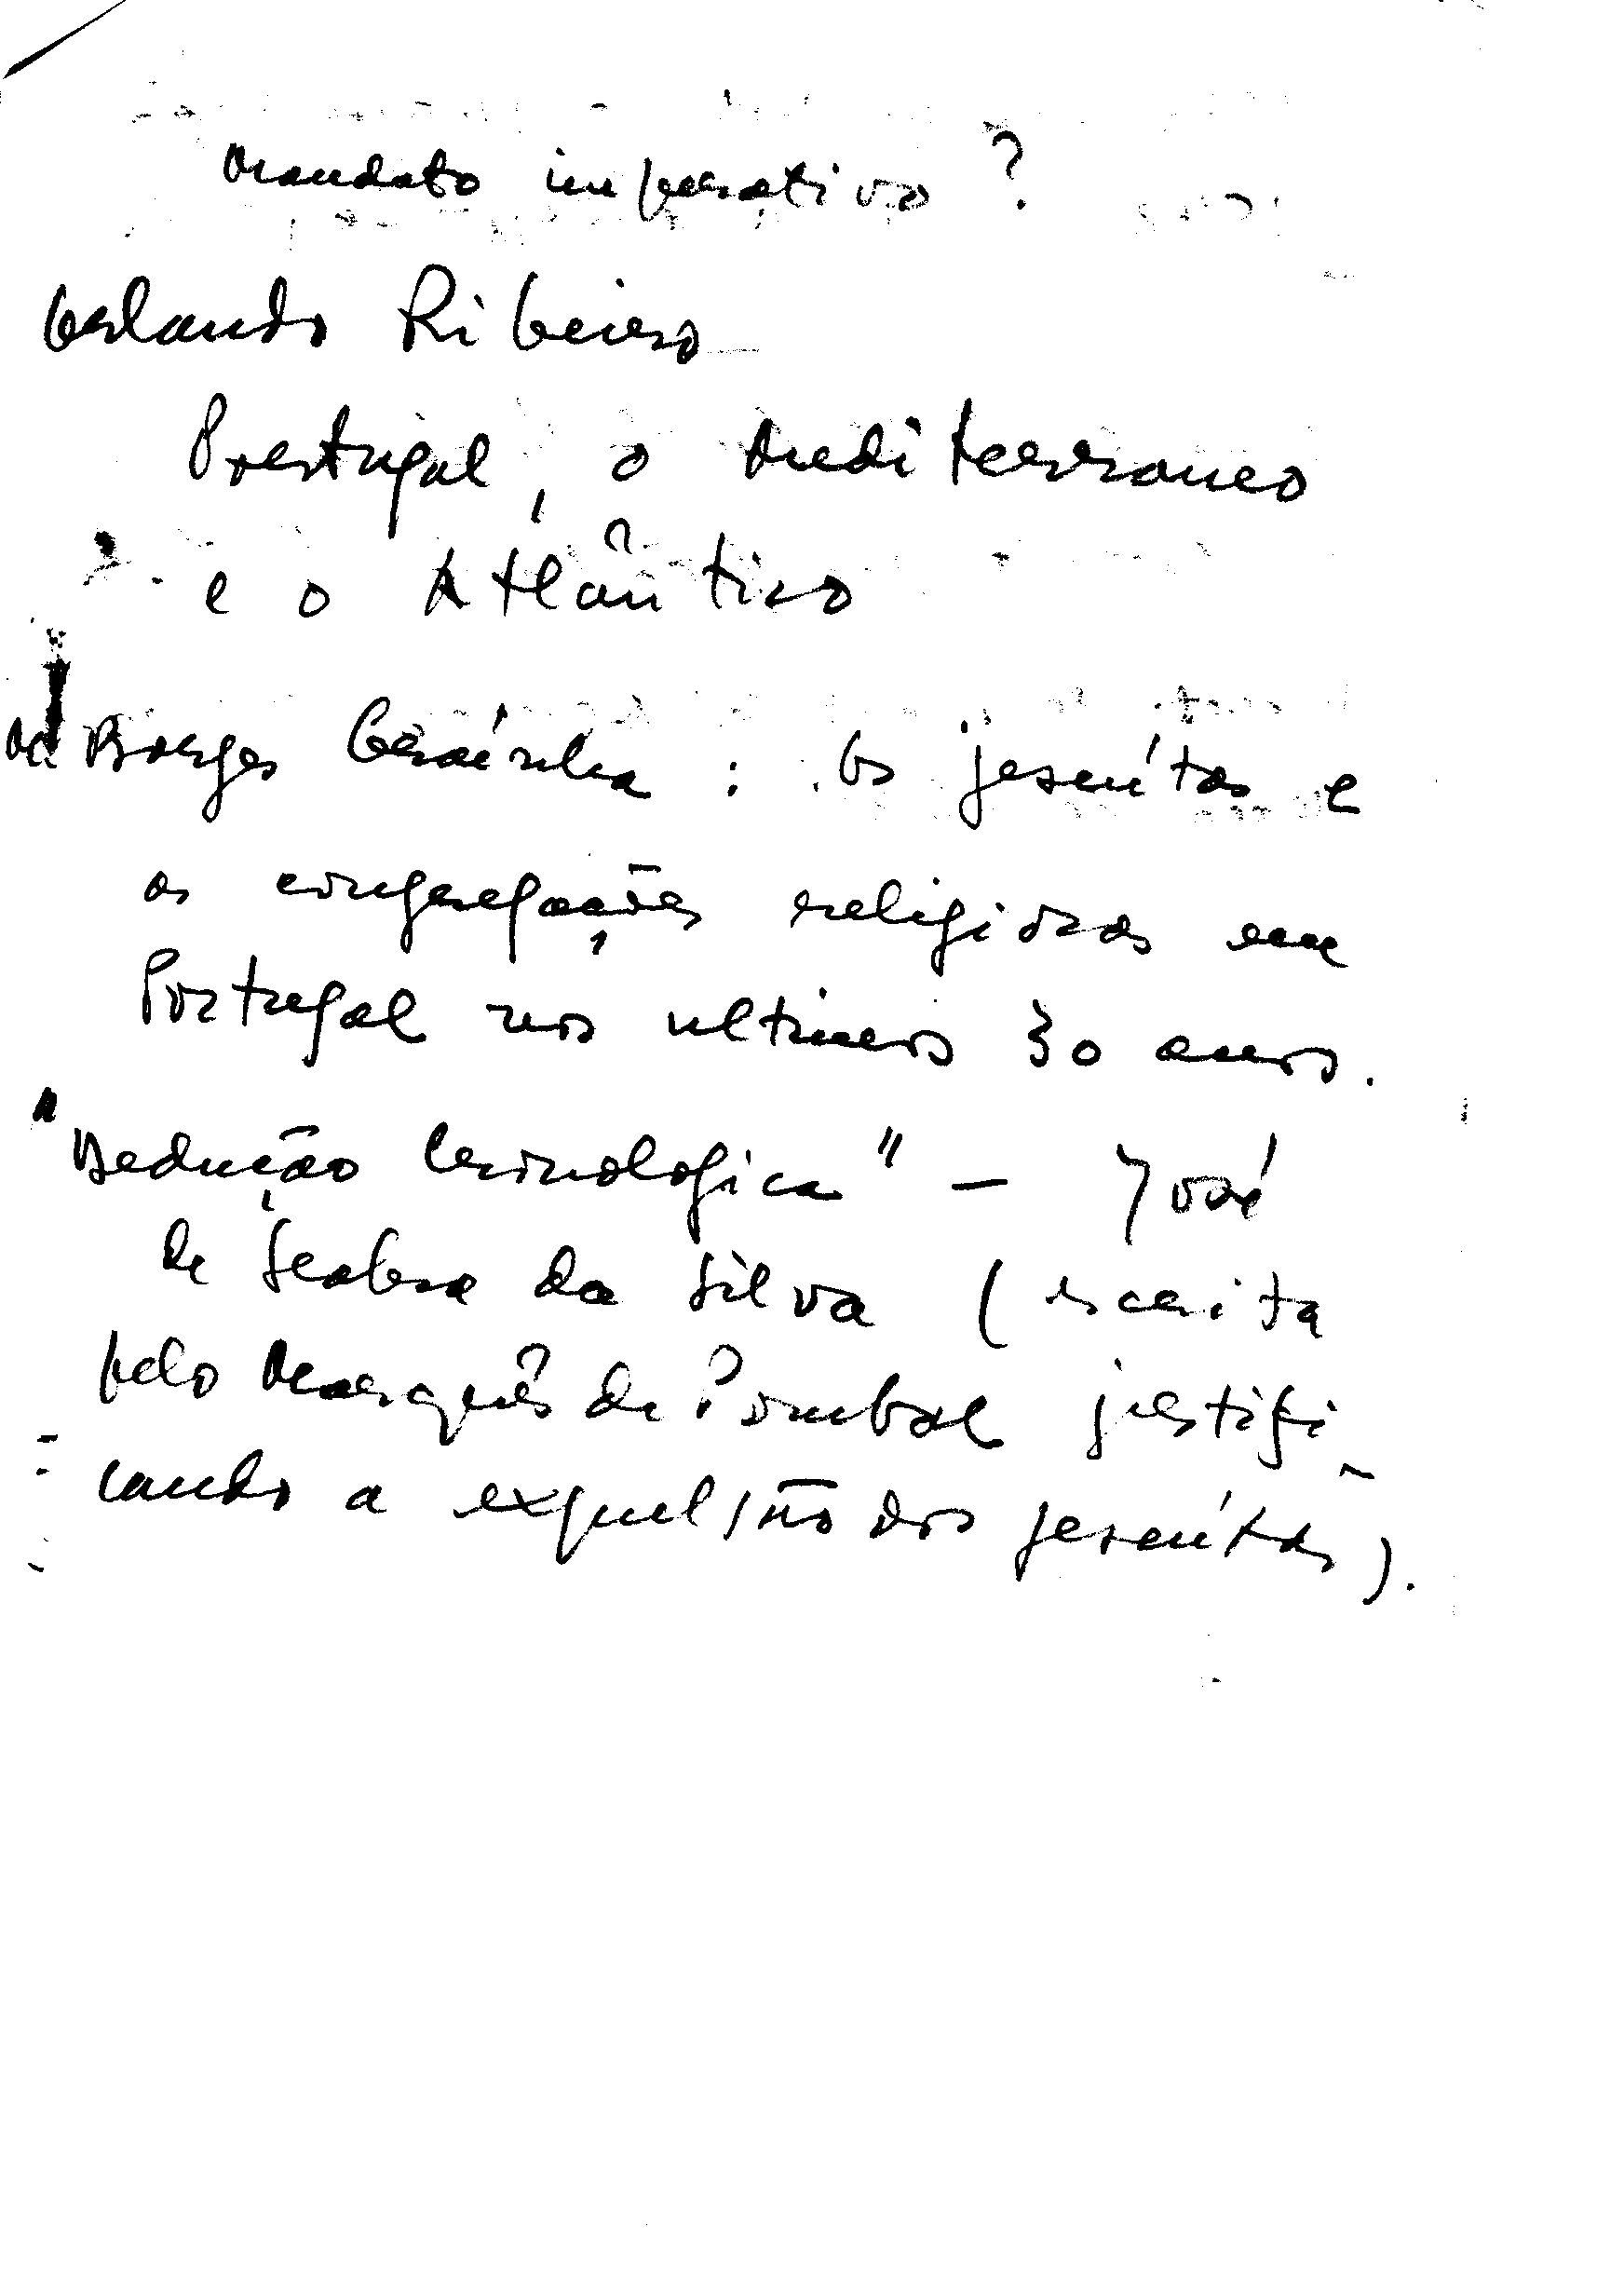 Mandato imperativo ?
Orlando Ribeiro
Portugal, o Mediterraneo
e o Atlântico
M. Borges Graínha : Os jesuítas e
as congregações religiosas em
Portugal nos ultimos 30 anos.
"Dedução Cronologica" — José
de Seabra da Silva (escrita
pelo Marquês de Pombal justifi
cando a expulsão dos jesuítas).